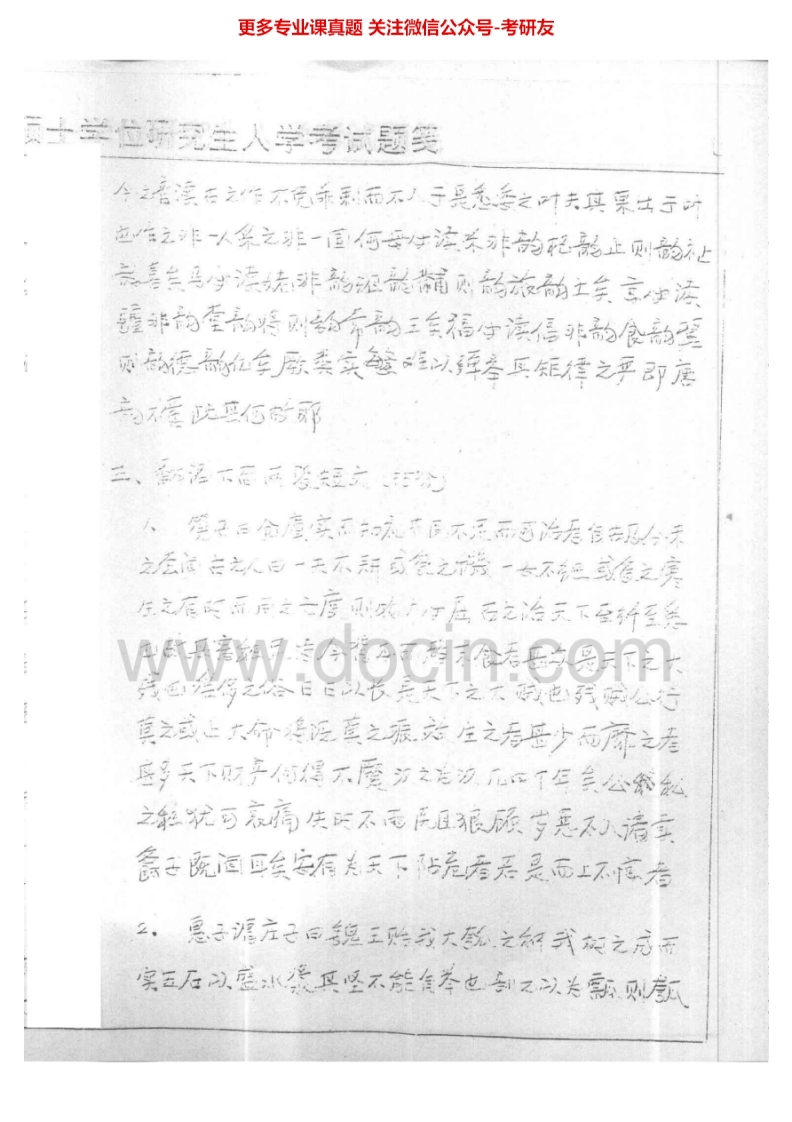 更多专业课真题 关注微信公众号-考研友
硕士学位研究生入学考试题笺
今之音读古之作不免乖剌而不入于是悉委之叶夫其果出于叶
也作之非一人采之非一国何母必读米非韵杞韵止则韵祉
韵喜矣马必读姥非韵组韵黼则韵旅韵土矣京必读
疆非韵堂韵将则韵常韵王矣福必读偪非韵食韵翼
则韵德韵亿矣厥类实繁难以殚举其矩律之严即唐
韵不啻此其何故邪
三、翻译下面两段短文
1、管子曰仓廪实而知礼节民不足而可治者自古及今未
之尝闻古之人曰一夫不耕或受之饥一女不织或受之寒
生之有时而用之亡度则物力必屈古之治天下至纤至悉
也故其畜积足恃今背本而趋末食者甚众是天下之大
残也淫侈之俗日日以长是天下之大贼也残贼公行
莫之或止大命将泛莫之振救生之者甚少而靡之者
甚多天下财产何得不蹶汉之为汉几四十年矣公私
之积犹可哀痛失时不雨民且狼顾岁恶不入请卖
爵子既闻耳矣安有为天下阽危者若是而上不惊者
2、惠子谓庄子曰魏王贻我大瓠之种我树之成而
实五石以盛水浆其坚不能自举也剖之以为瓢则瓠
www.docin.com